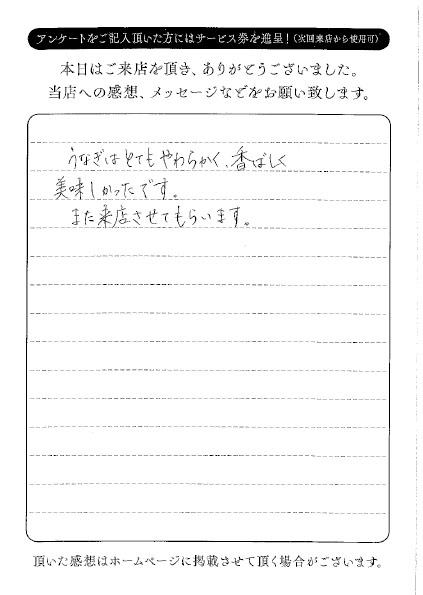 アンケートをご記入頂いた方にはサービス券を進呈！（次回来店から使用可）
本日はご来店を頂き、ありがとうございました。
当店への感想、メッセージなどをお願い致します。
うなぎはとてもやわらかく、香ばしく
美味しかったです。
また来店させてもらいます。
頂いた感想はホームページに掲載させて頂く場合がございます。